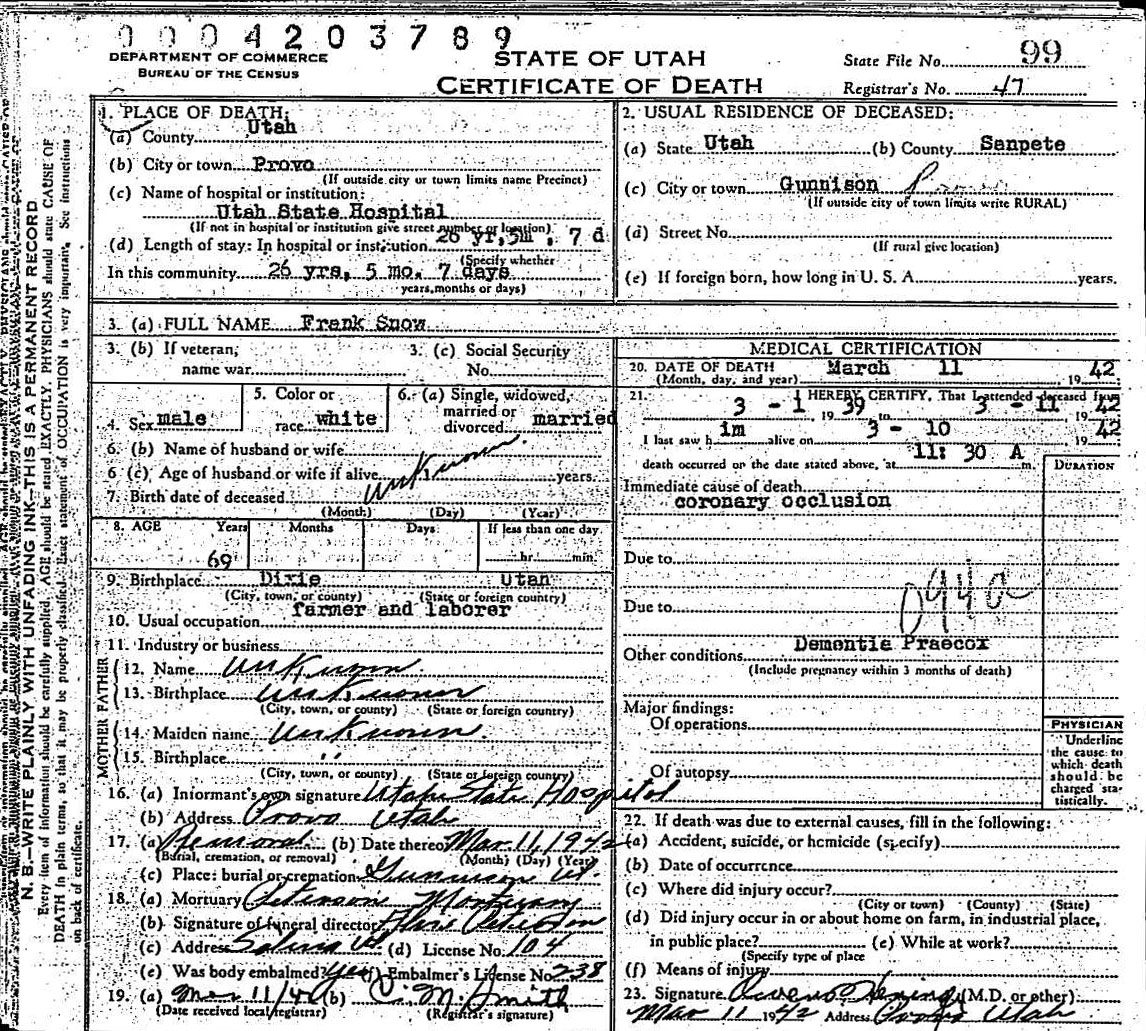 0 0 0 4 2 0 3 7 8 9
DEPARTMENT OF COMMERCE
BUREAU OF THE CENSUS
STATE OF UTAH
CERTIFICATE OF DEATH
State File No. 99
Registrar's No. 47
1. PLACE OF DEATH:
(a) County Utah
(b) City or town Provo
(If outside city or town limits name Precinct)
(c) Name of hospital or institution:
Utah State Hospital
(If not in hospital or institution give street number or location)
(d) Length of stay: In hospital or institution 26 yr, 5m, 7 d
(Specify whether
In this community 26 yrs, 5 mo. 7 days
years, months or days)
2. USUAL RESIDENCE OF DECEASED:
(a) State Utah (b) County Sanpete
(c) City or town Gunnison
(If outside city of town limits write RURAL)
(d) Street No.
(If rural give location)
(e) If foreign born, how long in U. S. A. years.
3. (a) FULL NAME Frank Snow
3. (b) If veteran, name war
3. (c) Social Security No.
4. Sex male
5. Color or race white
6. (a) Single, widowed, married or divorced married
6. (b) Name of husband or wife
6 (c) Age of husband or wife if alive years.
unknown
7. Birth date of deceased
(Month) (Day) (Year)
8. AGE Years Months Days If less than one day
69 hr. min.
9. Birthplace Dixie Utah
(City, town, or county) (State or foreign country)
10. Usual occupation farmer and laborer
11. Industry or business
FATHER
12. Name unknown
13. Birthplace unknown
(City, town, or county) (State or foreign country)
MOTHER
14. Maiden name unknown
15. Birthplace "
(City, town, or county) (State or foreign country)
16. (a) Informant's own signature Utah State Hospital
(b) Address Provo Utah
17. (a) Removal (b) Date thereof Mar 11, 1942
(Burial, cremation, or removal) (Month) (Day) (Year)
(c) Place: burial or cremation Gunnison Ut.
18. (a) Mortuary Peterson Mortuary
(b) Signature of funeral director Peterson
(c) Address Salina Ut (d) License No. 104
(e) Was body embalmed? Yes (f) Embalmer's License No. 238
19. (a) Mar 11/42 (b) C. M. Smith
(Date received local registrar) (Registrar's signature)
MEDICAL CERTIFICATION
20. DATE OF DEATH March 11 19 42
(Month, day, and year)
21. I HEREBY CERTIFY, That I attended deceased from
3 - 1 19 39 to 3 - 11 19 42
I last saw h im alive on 3 - 10 19 42
death occurred on the date stated above, at 11: 30 A m.
DURATION
Immediate cause of death
coronary occlusion
Due to
094a
Due to
Other conditions Dementia Praecox
(Include pregnancy within 3 months of death)
Major findings:
Of operations
Of autopsy
PHYSICIAN
Underline
the cause to
which death
should be
charged sta-
tistically.
22. If death was due to external causes, fill in the following:
(a) Accident, suicide, or homicide (specify)
(b) Date of occurrence
(c) Where did injury occur?
(City or town) (County) (State)
(d) Did injury occur in or about home on farm, in industrial place,
in public place? (e) While at work?
(Specify type of place
(f) Means of injury
23. Signature (M.D. or other)
Mar 11 1942 Address Provo Utah
N. B.—WRITE PLAINLY WITH UNFADING INK—THIS IS A PERMANENT RECORD
Every item of information should be carefully supplied. AGE should be stated EXACTLY. PHYSICIANS should state CAUSE OF
DEATH in plain terms, so that it may be properly classified. Exact statement of OCCUPATION is very important. See instructions
on back of certificate.